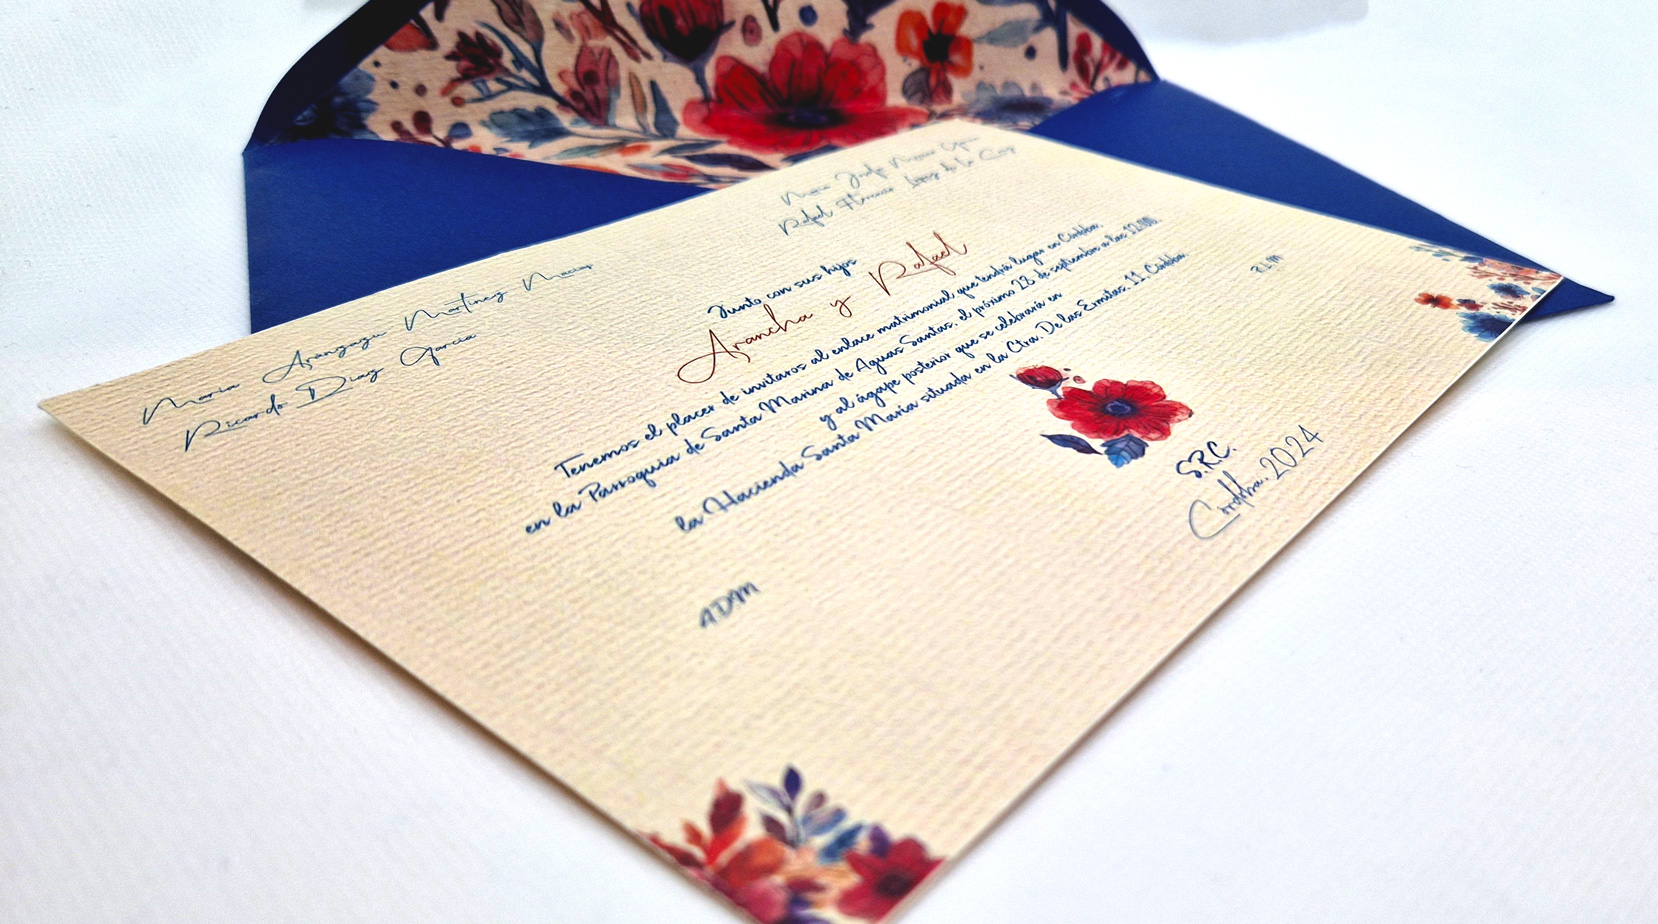 Maria Aranzazu Martinez Macias
Ricardo Diaz Garcia
Rafael
Junto con sus hijos
Arancha y Rafael
Tenemos el placer de invitaros al enlace matrimonial que tendrá lugar en Córdoba,
en la Parroquia de Santa Marina de Aguas Santas, el próximo 28 de septiembre a las 12:00.
y al ágape posterior que se celebrará en
la Hacienda Santa María situada en la Ctra. De las Ermitas, 11. Córdoba.
S.R.C.
Córdoba, 2024
ADM